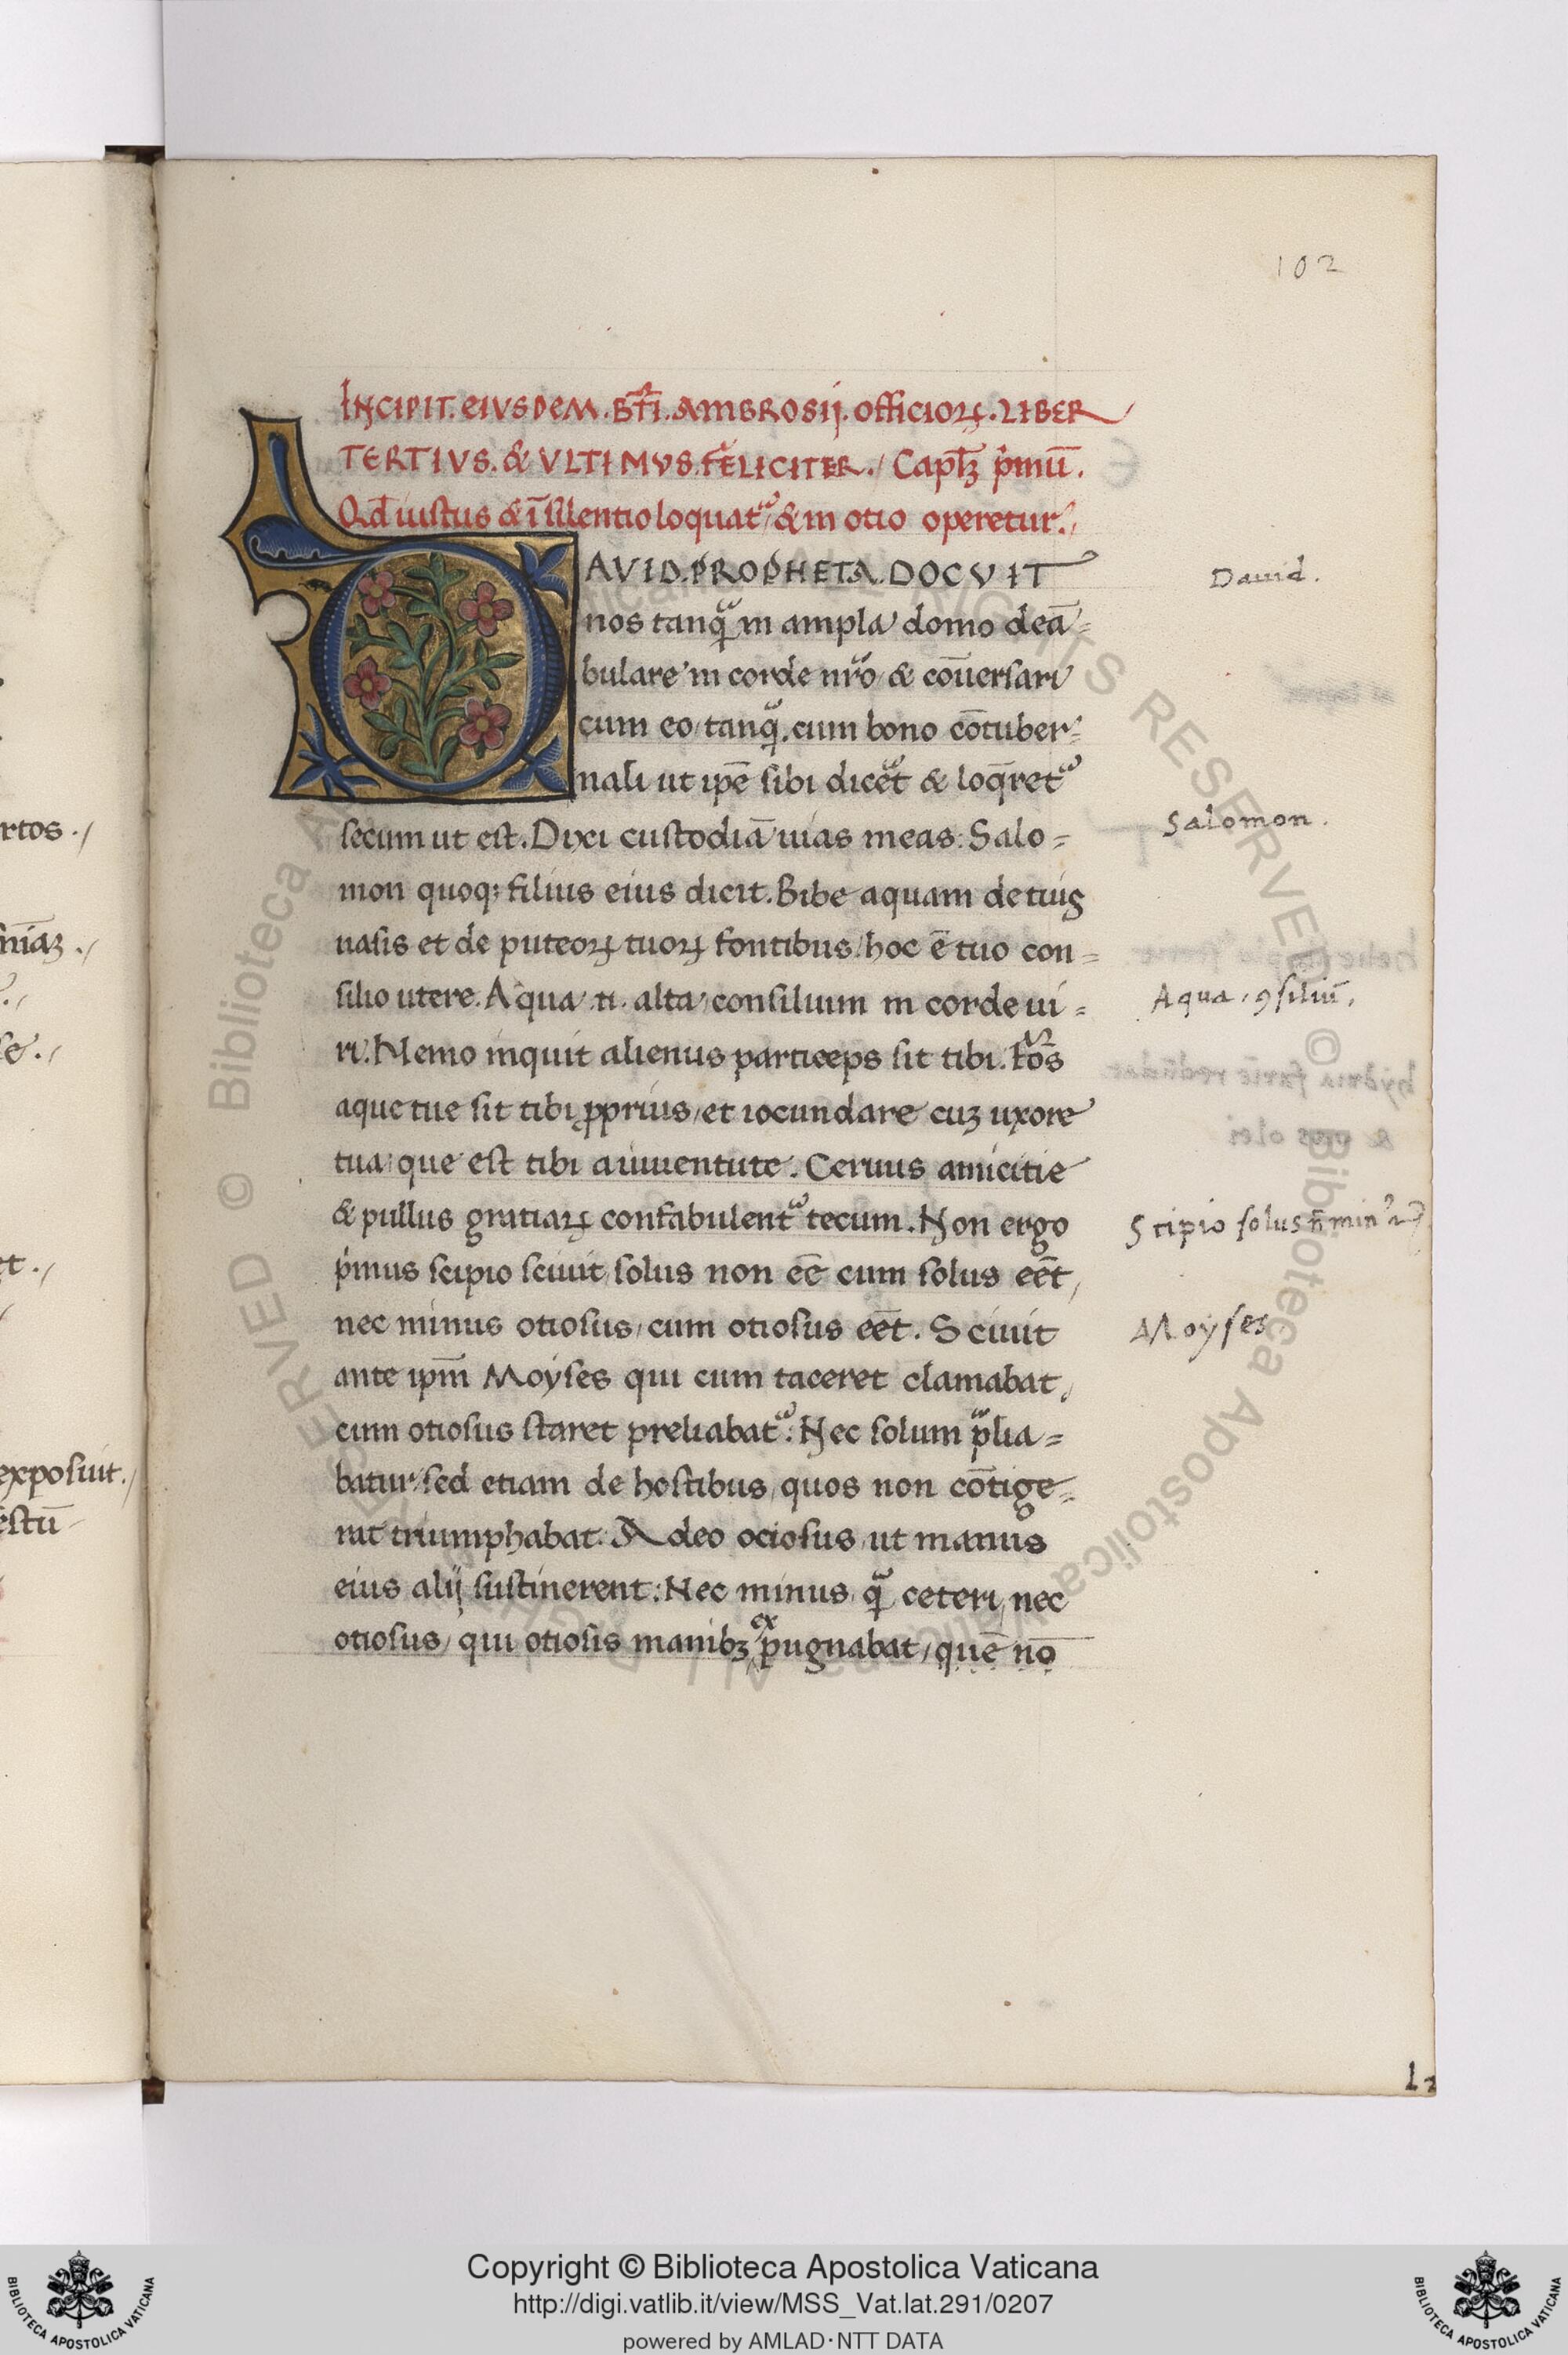 102
INCIPIT. EIVSDEM. Bt̄i. AMBROSIJ. officioꝝ. LIBER
TERTIVS. & VLTIMVS. FELICITER. / Capt̄ꝫ p̾mū.
Qd̄ iustus & ī silentio loquat᷑ / & in otio operetur. /
DAVID. PROPHETA. DOCVIT
nos tanqᷓ in ampla domo deā-
bulare in corde nr̄o / & cōuersari
cum eo / tanqᷓ. cum bono cōtuber-
nali ut ip̄e sibi dicet᷑ & loq̄ret᷑
secum ut est. Dixi custodiā uias meas: Salo=
mon quoqꝫ filius eius dicit. Bibe aquam de tuis
uasis et de puteoꝝ tuoꝝ fontibus / hoc ē tuo con=
silio utere. Aqua .n. alta / consilium in corde ui=
ri. Nemo inquit alienus particeps sit tibi. Fōs
aque tue sit tibi ꝓprius / et iocundare cuꝫ uxore
tua: que est tibi a iuuentute. Ceruus amicitie
& pullus gratiaꝝ confabulent᷑ tecum. Non ergo
p̾mus scipio sciuit / solus non eē cum solus eēt,
nec minus otiosus / cum otiosus eēt. Sciuit
ante ipm̄ Moyses qui cum taceret clamabat,
cum otiosus staret preliabat᷑: Nec solum p̄lia=
batur / sed etiam de hostibus / quos non cōtige-
rat triumphabat. Adeo ociosus / ut manus
eius alij sustinerent: Nec minus / qᷓ ceteri, nec
otiosus / qui otiosis manibꝫ expugnabat / quē nō
Dauid.
Salomon.
Aqua. ꝯsiliū.
Scipio solus n̄ min᾽
Moyses
rtos. /
exposiuit. /
estū
Copyright © Biblioteca Apostolica Vaticana
http://digi.vatlib.it/view/MSS_Vat.lat.291/0207
powered by AMLAD·NTT DATA
BIBLIOTECA APOSTOLICA VATICANA
BIBLIOTECA APOSTOLICA VATICANA